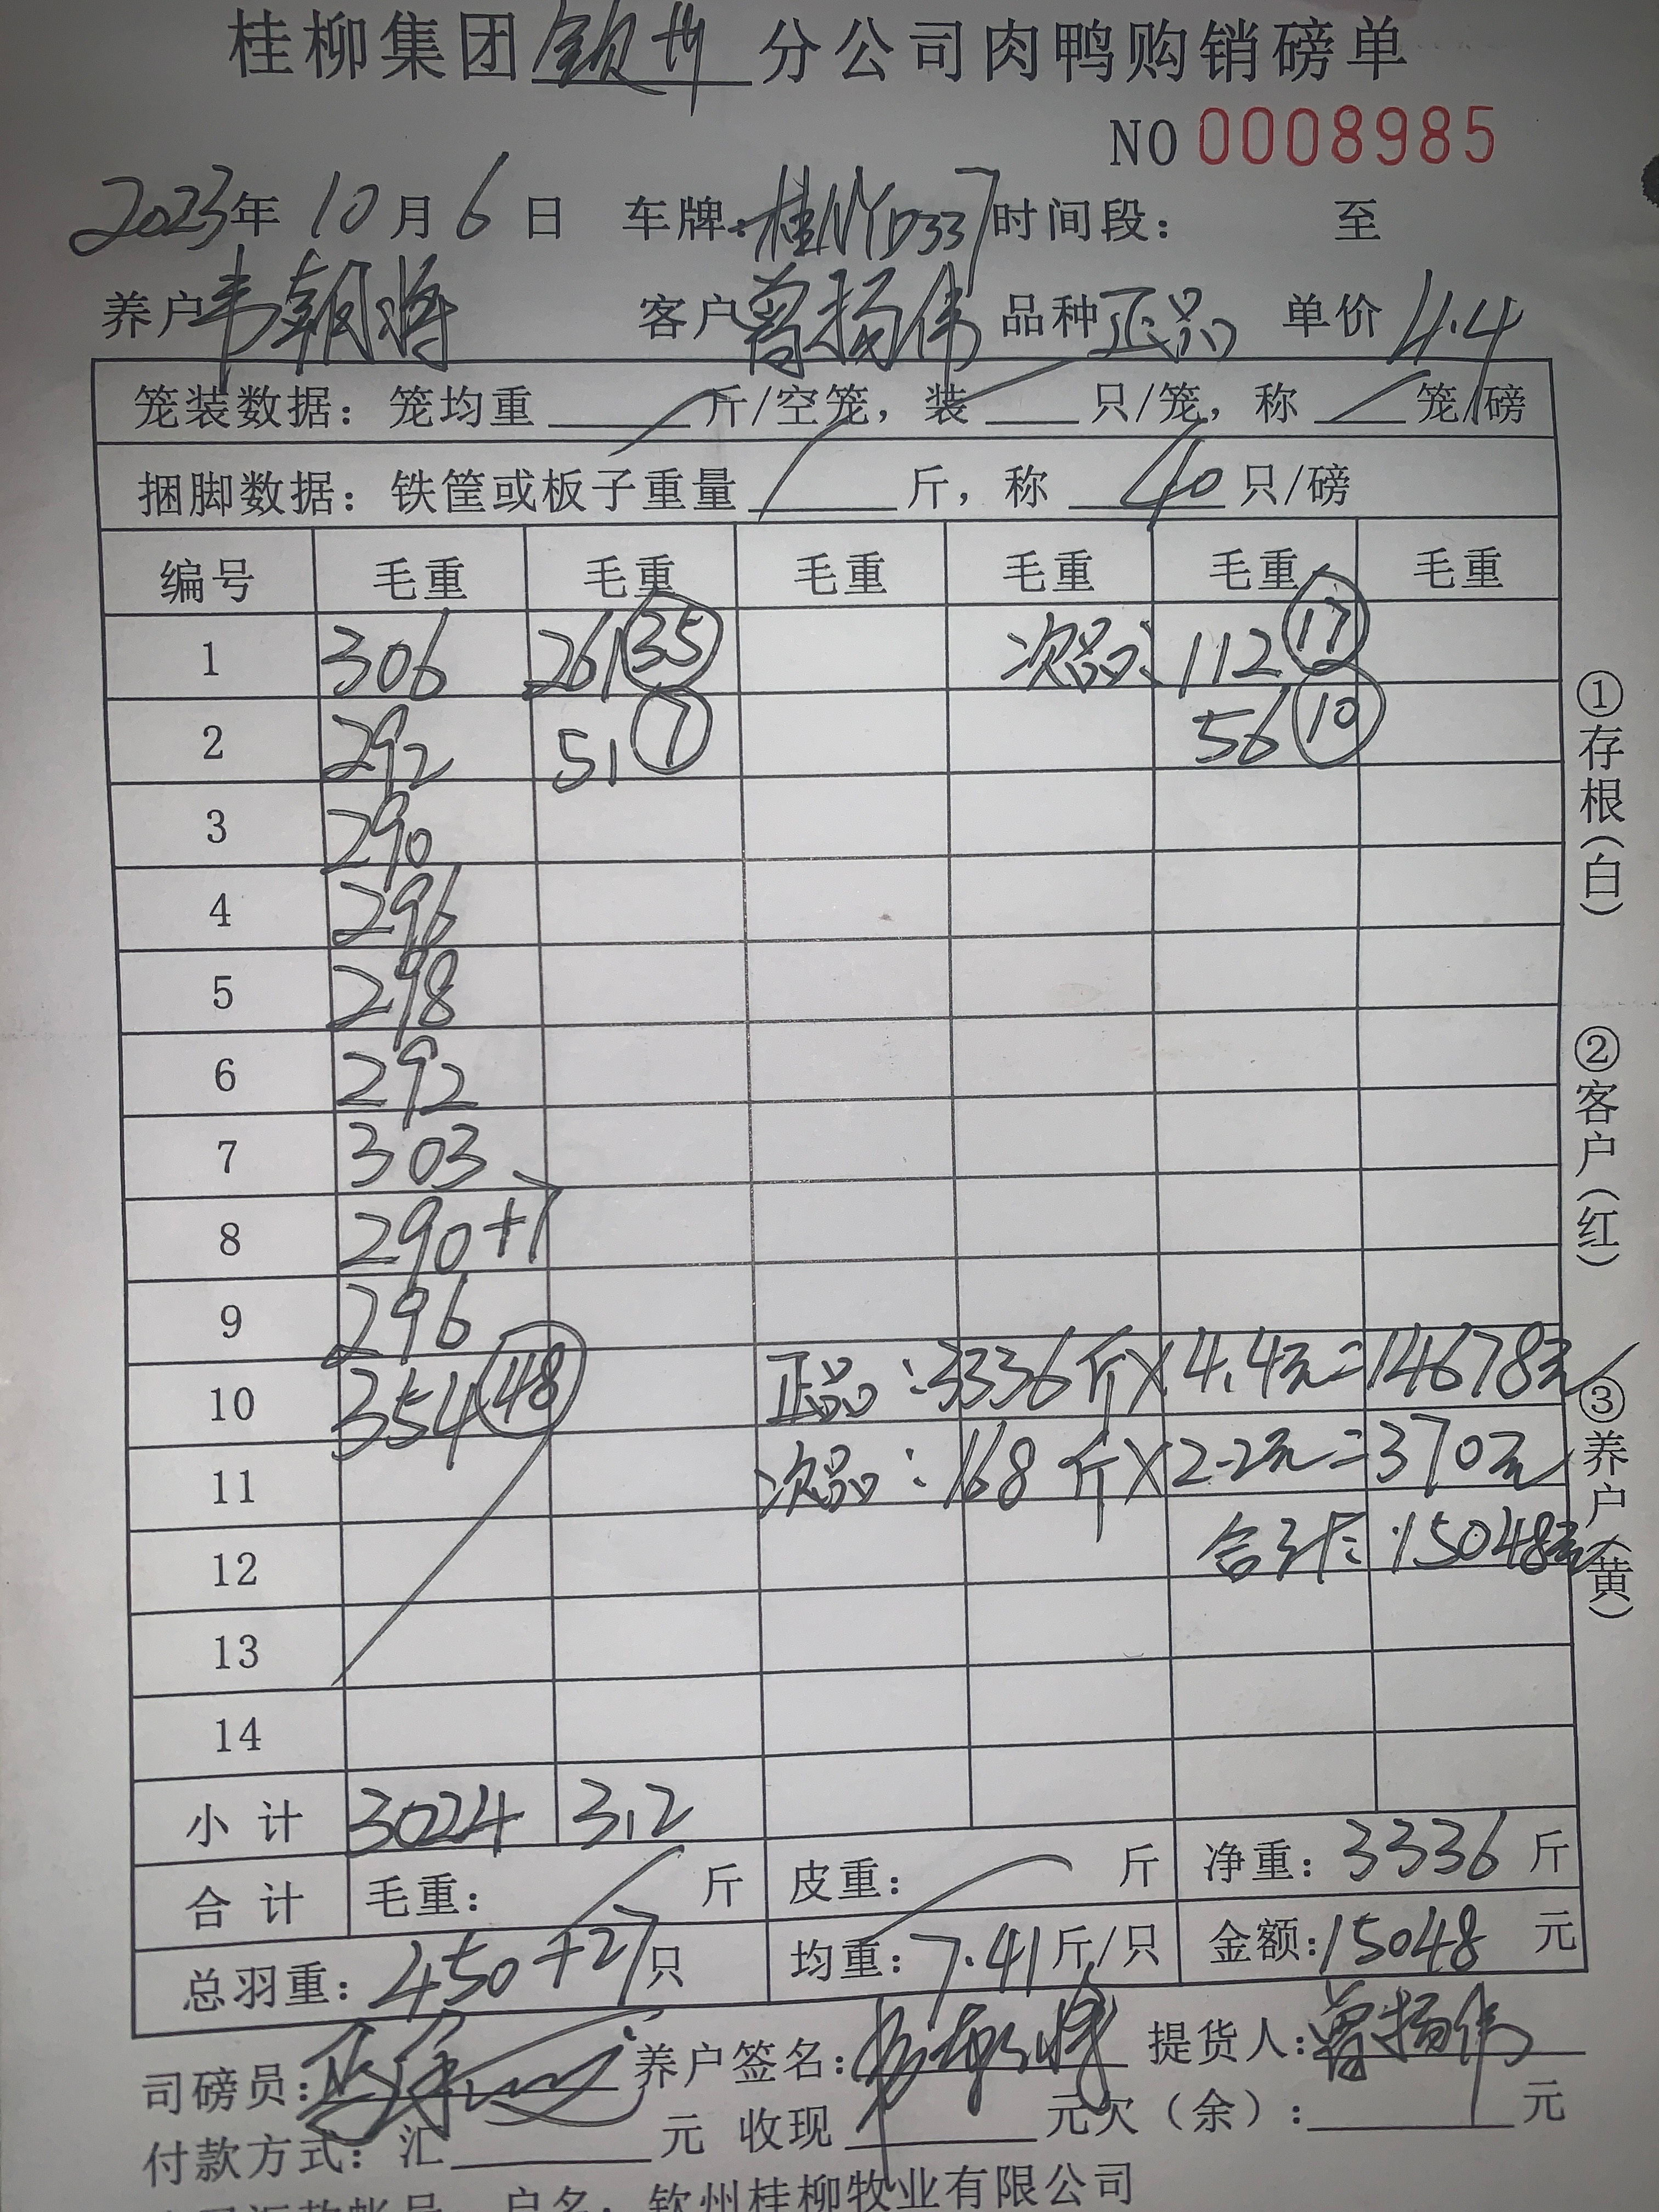 桂柳集团钦州分公司肉鸭购销磅单
NO 0008985
2023年 10月6日 车牌:桂NYD337时间段: 至
养户韦朝将 客户曾扬伟 品种正品 单价4.4
笼装数据: 笼均重 斤/空笼, 装 只/笼, 称 笼/磅
捆脚数据: 铁筐或板子重量 斤, 称 40 只/磅
编号 毛重 毛重 毛重 毛重 毛重 毛重
1 306 261 35 次品: 112 17
2 292 51 7 56 10
3 290
4 296
5 298
6 292
7 303
8 290+7
9 296
10 354 48 正品:3336斤×4.4元=14678元
11 次品:168斤×2.2元=370元
12 合计:15048元
13
14
小计 3024 312
合计 毛重: 斤 皮重: 斤 净重: 3336 斤
总羽重: 450+27只 均重: 7.41斤/只 金额:15048 元
司磅员: 养户签名: 提货人:曾扬伟
付款方式: 汇 元 收现 元欠(余): 元
户名: 钦州桂柳牧业有限公司
①存根(白)
②客户(红)
③养户(黄)